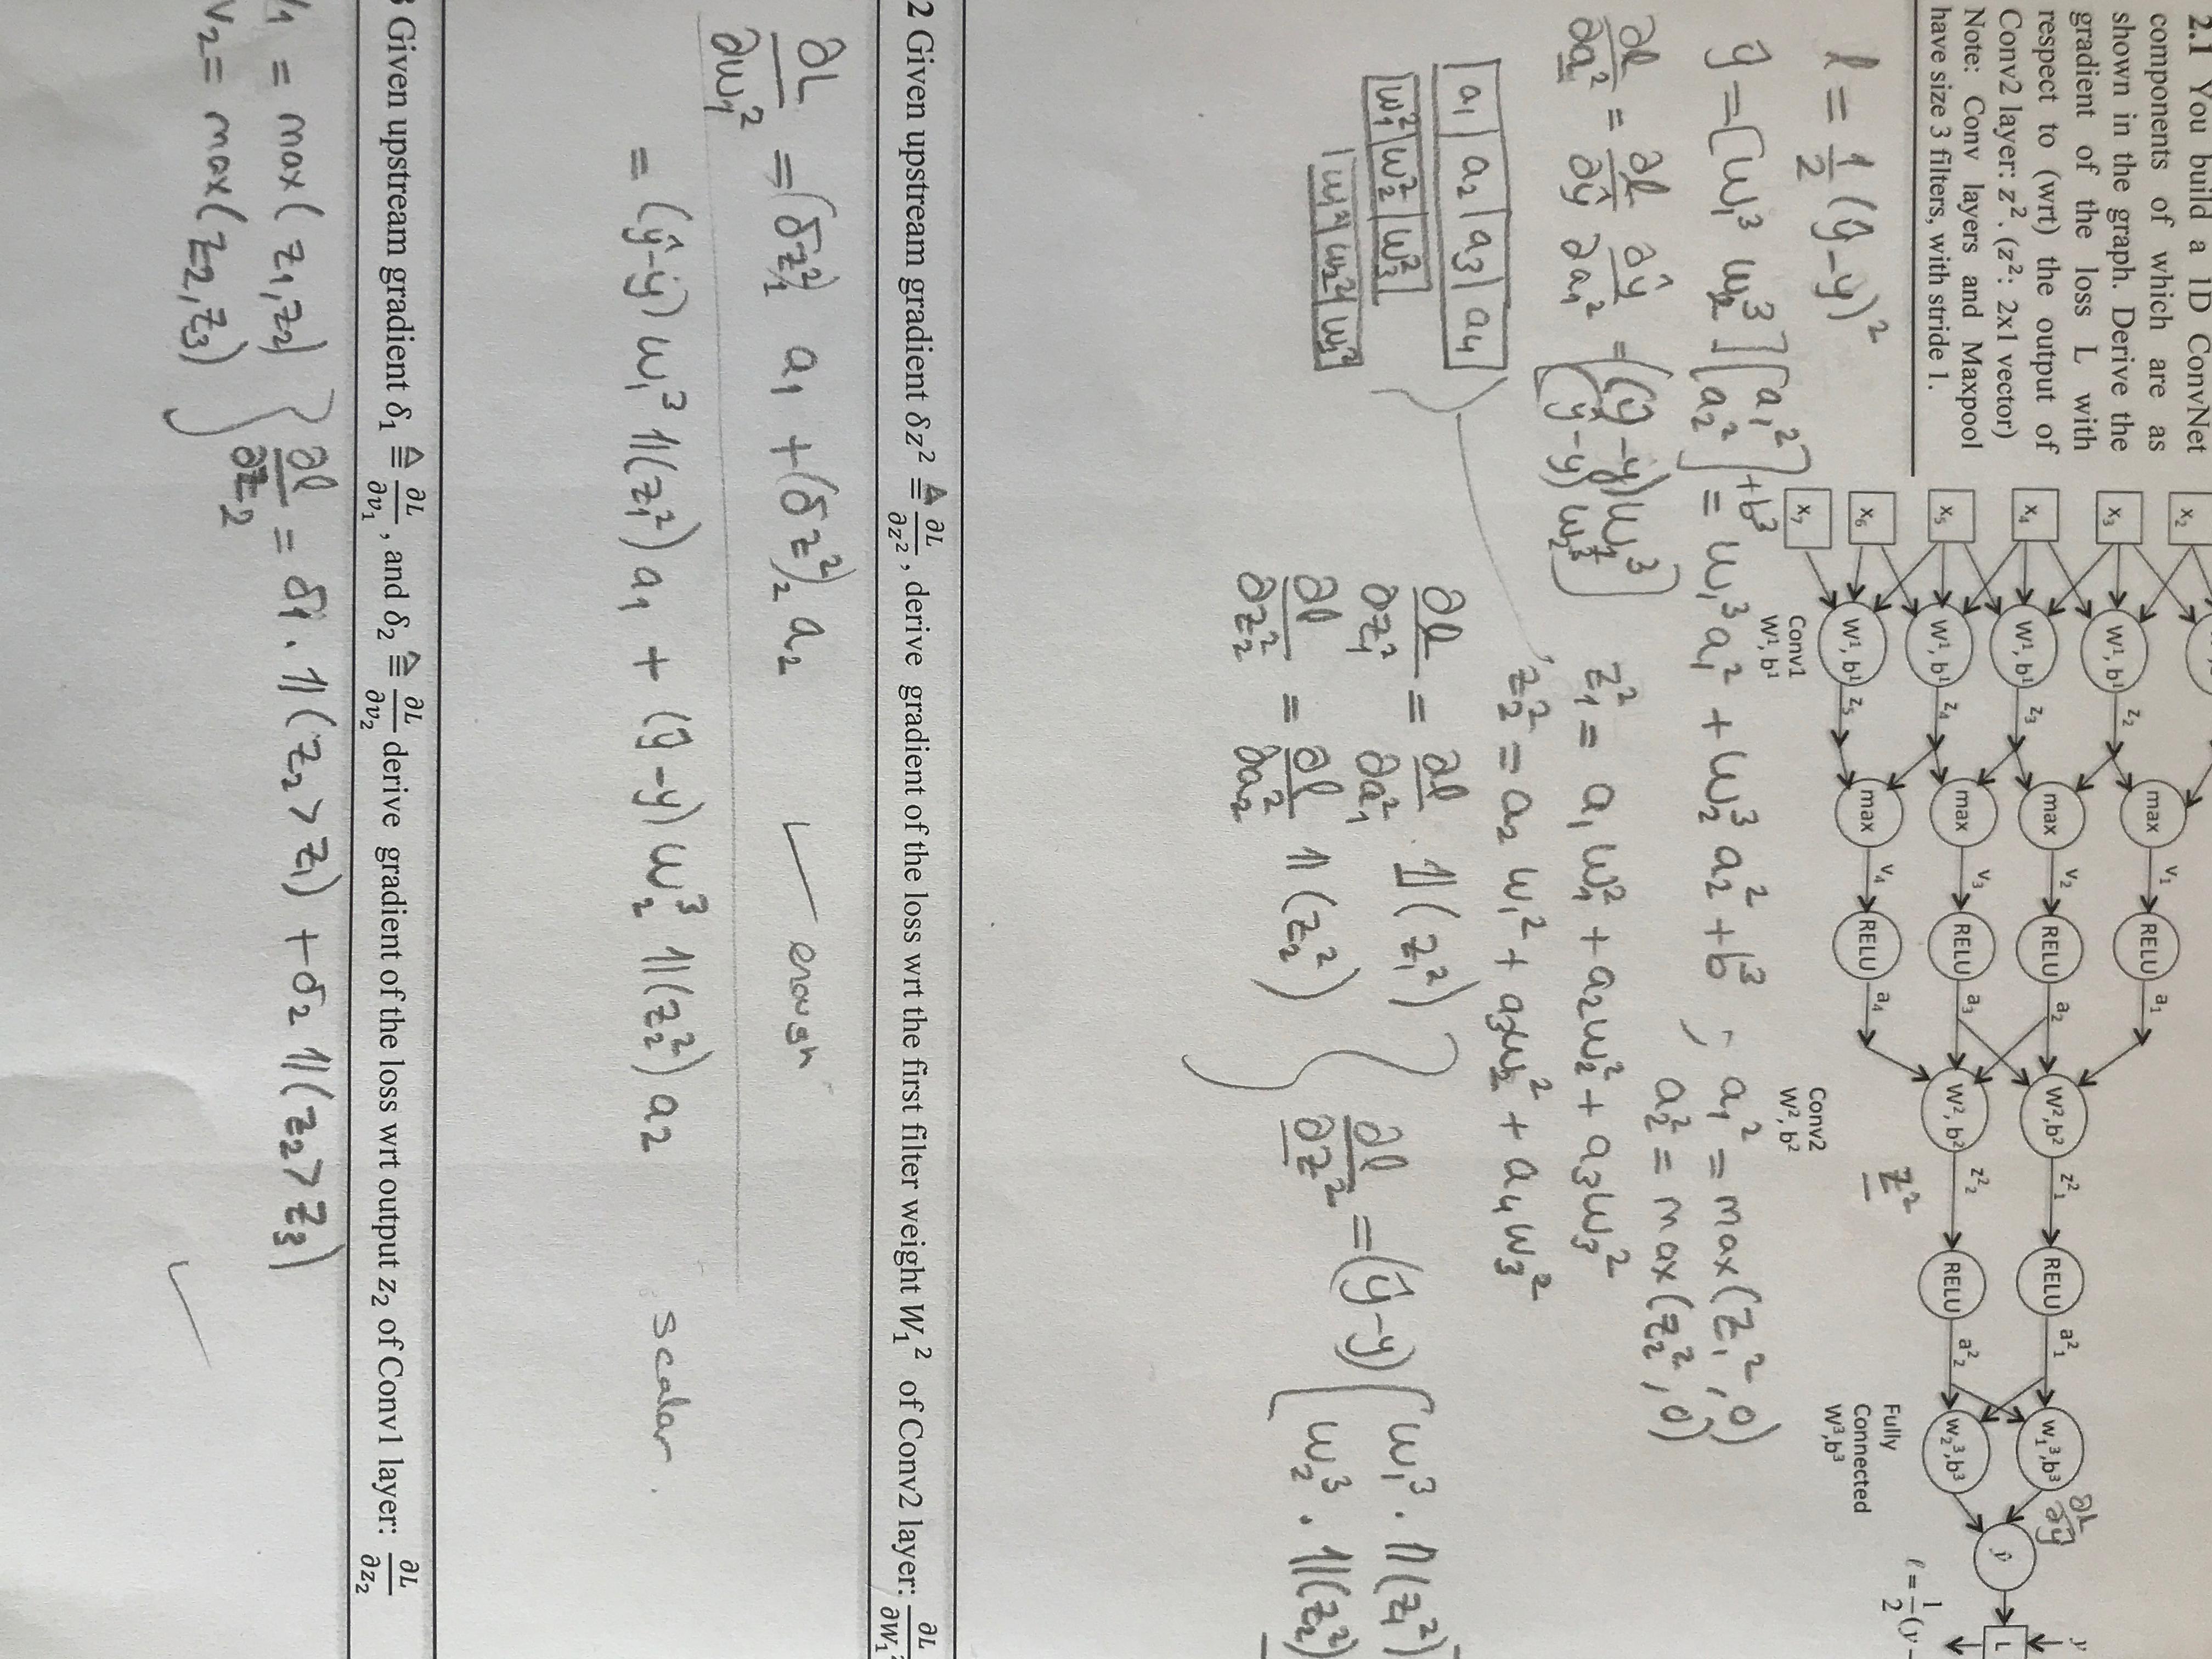 2.1 You build a 1D ConvNet
components of which are as
shown in the graph. Derive the
gradient of the loss L with
respect to (wrt) the output of
Conv2 layer: z². (z²: 2x1 vector)
Note: Conv layers and Maxpool
have size 3 filters, with stride 1.
x₂
x₃ W¹, b¹ z₂ max v₁ RELU a₁
x₄ W¹, b¹ z₃ max v₂ RELU a₂ W², b² z²₁ RELU a²₁ w₁³,b³ ∂L/∂ŷ y
x₅ W¹, b¹ z₄ max v₃ RELU a₃ W², b² z²₂ RELU a²₂ w₂³,b³ ŷ L
x₆ W¹, b¹ z₅ max v₄ RELU a₄ z²
x₇
Conv1
W¹, b¹
Conv2
W², b²
Fully
Connected
W³,b³
ℓ = 1/2 (y -
ℓ = 1/2 (ŷ-y)²
ŷ = [w₁³ w₂³] [a₁² a₂²] + b³ = w₁³ a₁² + w₂³ a₂² + b³ ; a₁² = max(z₁², 0)
a₂² = max(z₂², 0)
∂ℓ/∂a² = ∂ℓ/∂ŷ ∂ŷ/∂a₁² = [(ŷ-y) w₁³ (ŷ-y) w₂³]
z₁² = a₁ w₁² + a₂ w₂² + a₃ w₃²
z₂² = a₂ w₁² + a₃ w₂² + a₄ w₃²
a₁ a₂ a₃ a₄
w₁² w₂² w₃²
w₁² w₂² w₃²
∂ℓ/∂z₁² = ∂ℓ/∂a₁² · 𝟙(z₁²)
∂ℓ/∂z₂² = ∂ℓ/∂a₂² 𝟙(z₂²)
∂ℓ/∂z² = (ŷ-y) [w₁³ · 𝟙(z₁²) w₂³ · 𝟙(z₂²)
2 Given upstream gradient δz² ≜ ∂L/∂z², derive gradient of the loss wrt the first filter weight W₁² of Conv2 layer: ∂L/∂W₁²
∂L/∂w₁² = (δz²)₁ a₁ + (δz²)₂ a₂ ✓ enough
= (ŷ-y) w₁³ 𝟙(z₁²) a₁ + (ŷ-y) w₂³ 𝟙(z₂²) a₂ scalar.
3 Given upstream gradient δ₁ ≜ ∂L/∂v₁, and δ₂ ≜ ∂L/∂v₂ derive gradient of the loss wrt output z₂ of Conv1 layer: ∂L/∂z₂
v₁ = max(z₁,z₂)
v₂ = max(z₂,z₃)
∂ℓ/∂z₂ = δ₁ · 𝟙(z₂ > z₁) + δ₂ 𝟙(z₂ > z₃)
✓